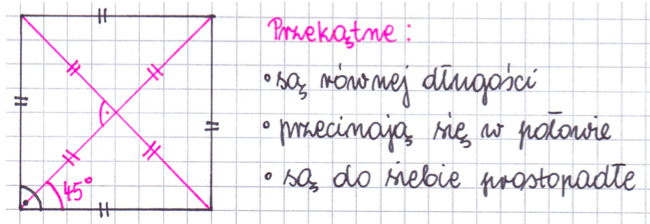 Przekątne:
• są równej długości
• przecinają się w połowie
• są do siebie prostopadłe
45°